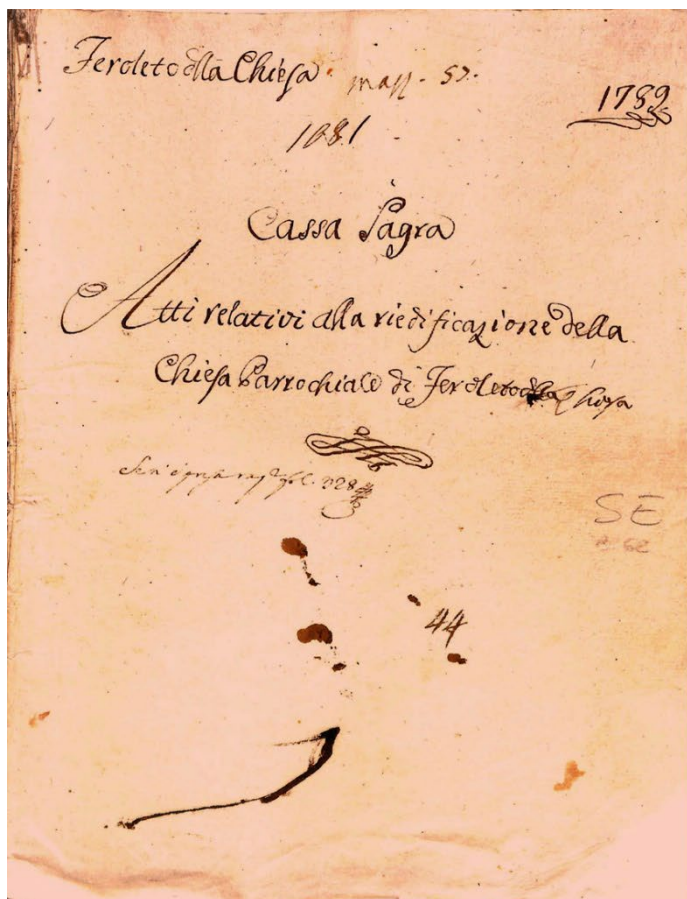 Feroleto della Chiesa mazz. 57.
1789
1081
Cassa Sagra
Atti relativi alla riedificazione della
Chiesa Parrochiale di Feroleto della Chiesa
228
SE
62
44